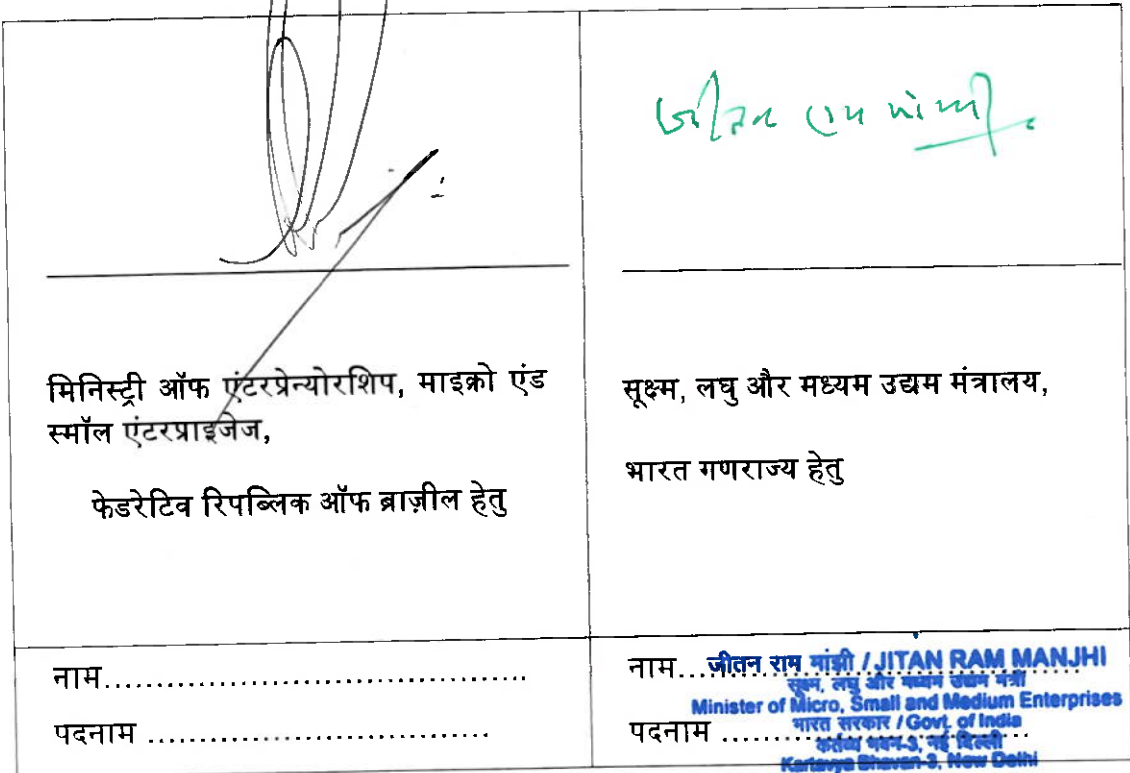 जीतन राम मांझी
मिनिस्ट्री ऑफ एंटरप्रेन्योरशिप, माइक्रो एंड
स्मॉल एंटरप्राइजेज,
फेडरेटिव रिपब्लिक ऑफ ब्राज़ील हेतु
सूक्ष्म, लघु और मध्यम उद्यम मंत्रालय,
भारत गणराज्य हेतु
नाम..........................................
पदनाम ..................................
नाम...जीतन राम मांझी / JITAN RAM MANJHI
सूक्ष्म, लघु और मध्यम उद्यम मंत्री
Minister of Micro, Small and Medium Enterprises
पदनाम ........भारत सरकार / Govt. of India
कर्तव्य भवन-3, नई दिल्ली
Kartavya Bhavan-3, New Delhi